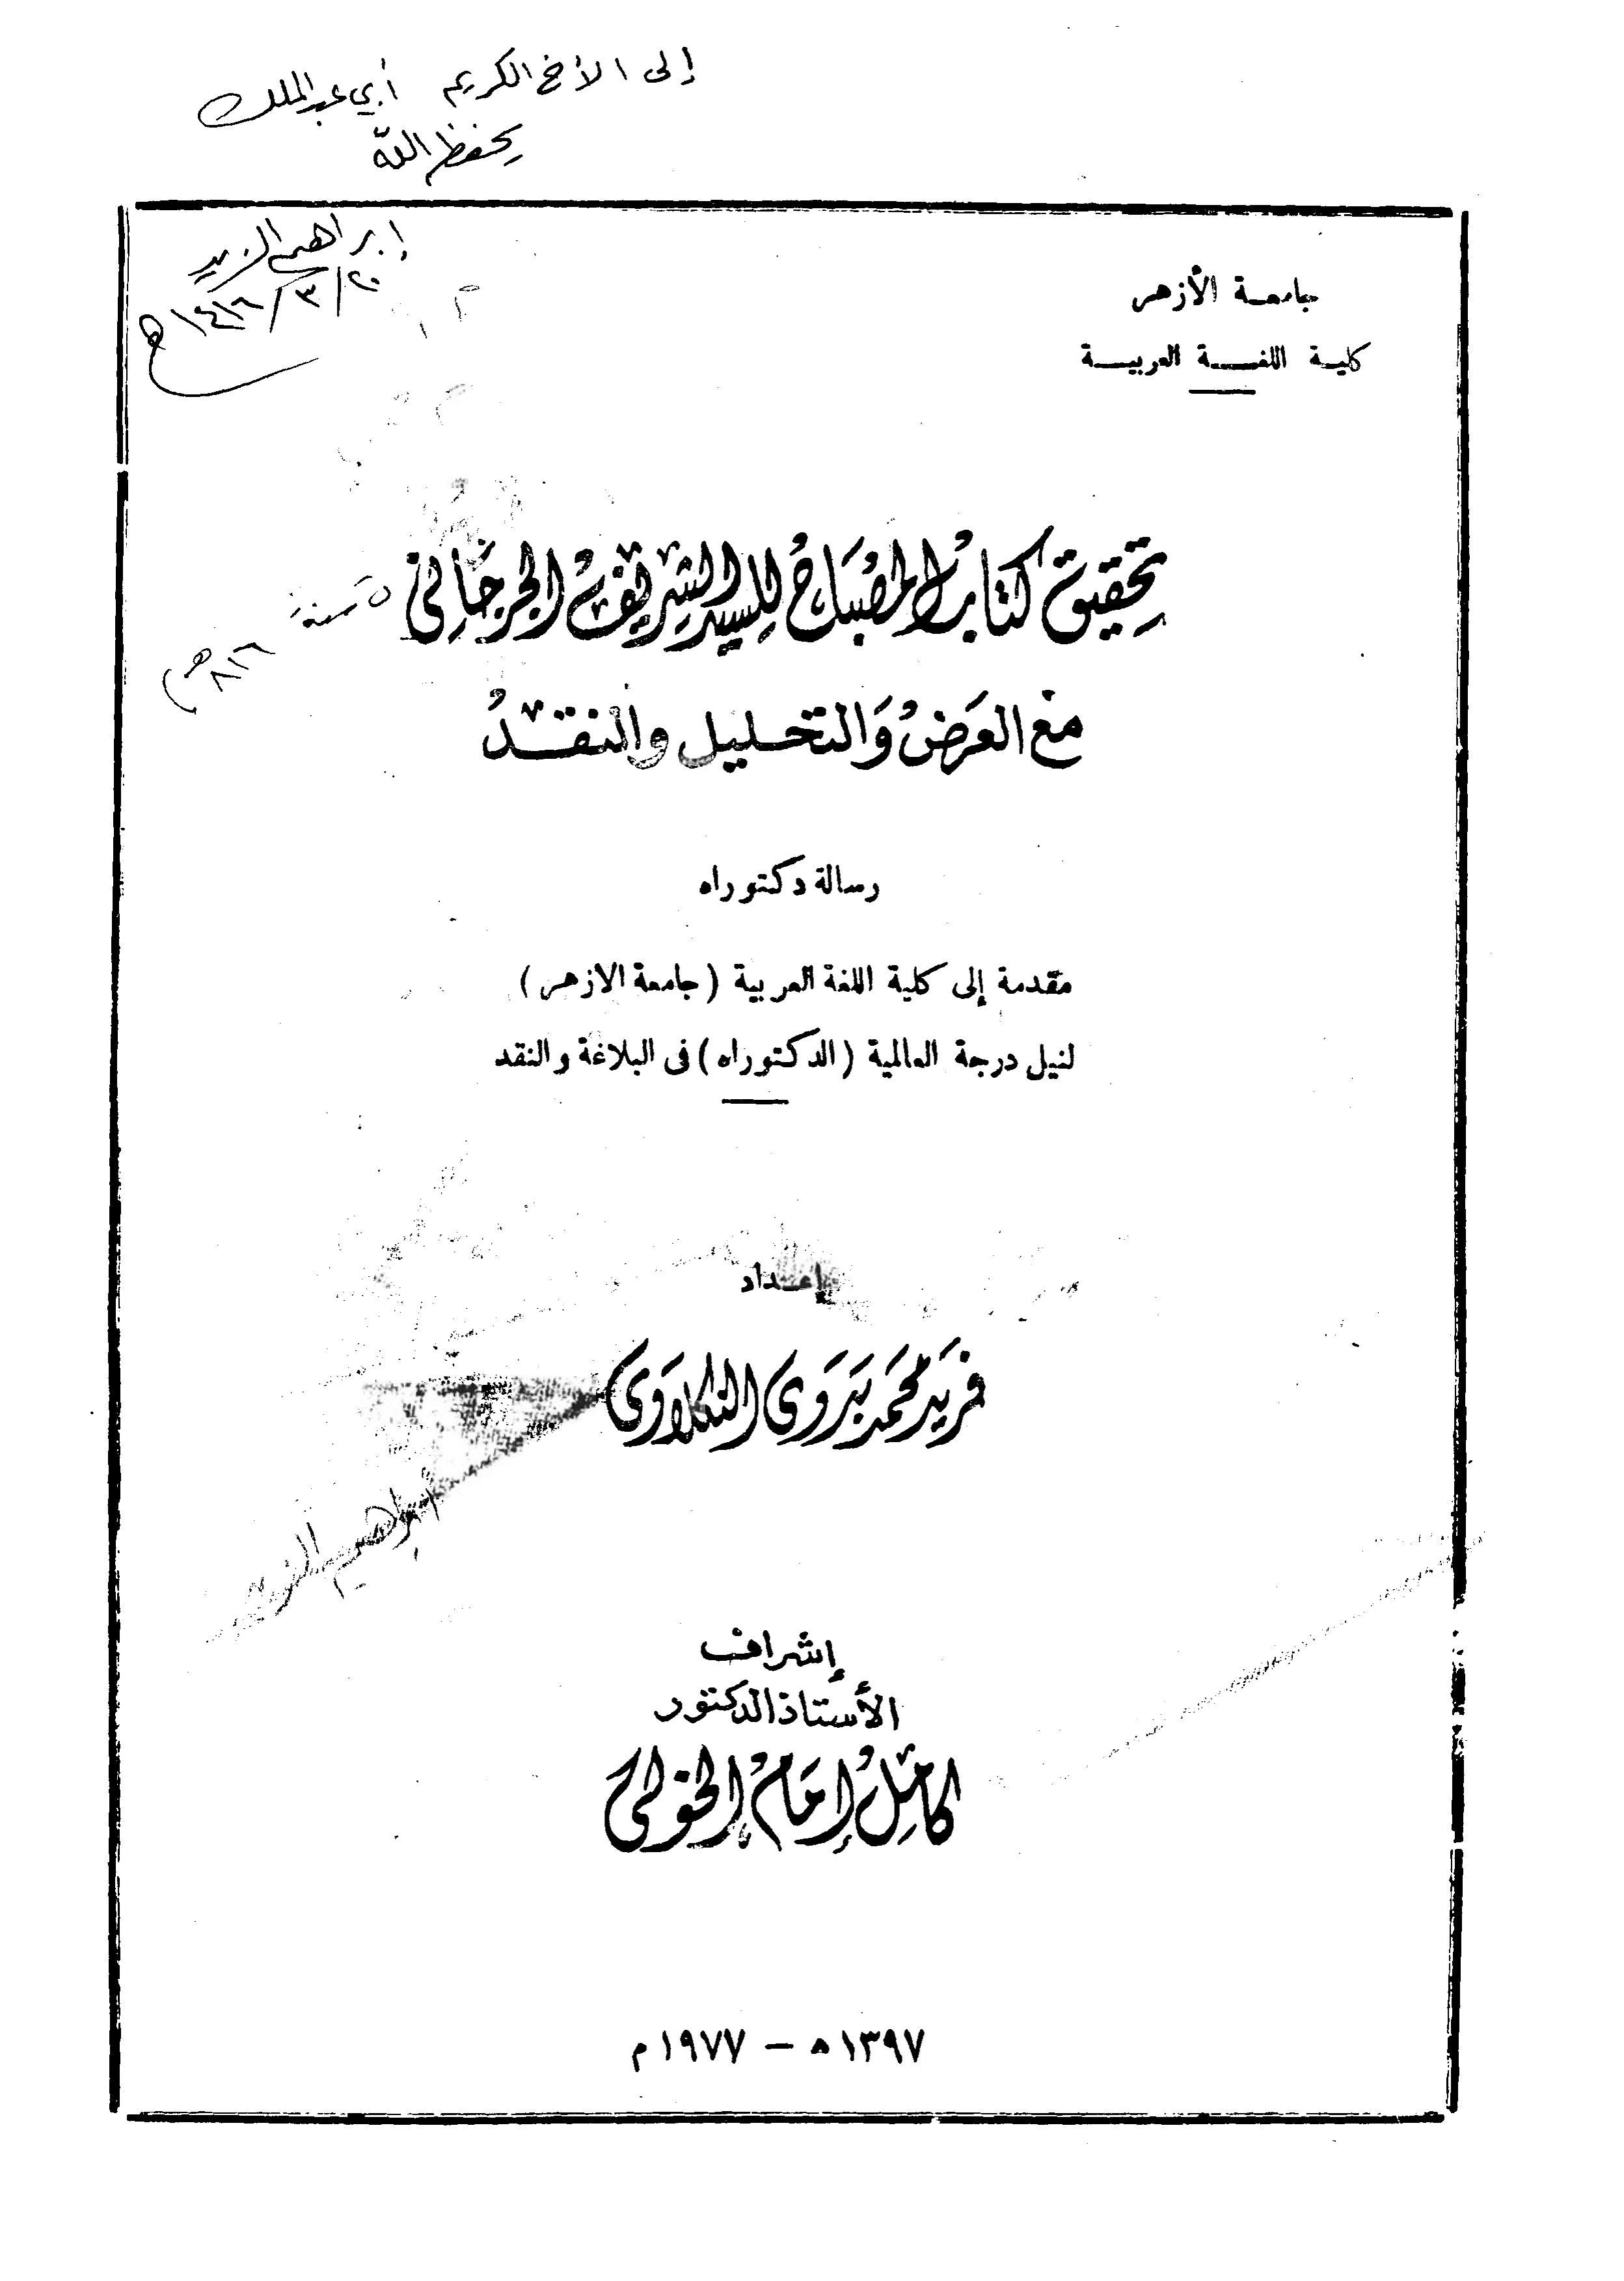 إلى الأخ الكريم أبي عبد الملك
يحفظه الله
إبراهيم الزيد
٢٠/٣/١٤١٦ هـ
جامعة الأزهر
كلية اللغة العربية
تحقيق كتاب المصباح للسيد الشريف الجرجاني
ت سنة
٨١٦ هـ
مع العرض والتحليل والنقد
رسالة دكتوراه
مقدمة إلى كلية اللغة العربية (جامعة الازهر)
لنيل درجة العالمية (الدكتوراه) فى البلاغة والنقد
إعداد
فريد محمد بدوى النكلاوى
إبراهيم الزيد
إشراف
الأستاذ الدكتور
كامل إمام الخولى
١٣٩٧ ه – ١٩٧٧ م